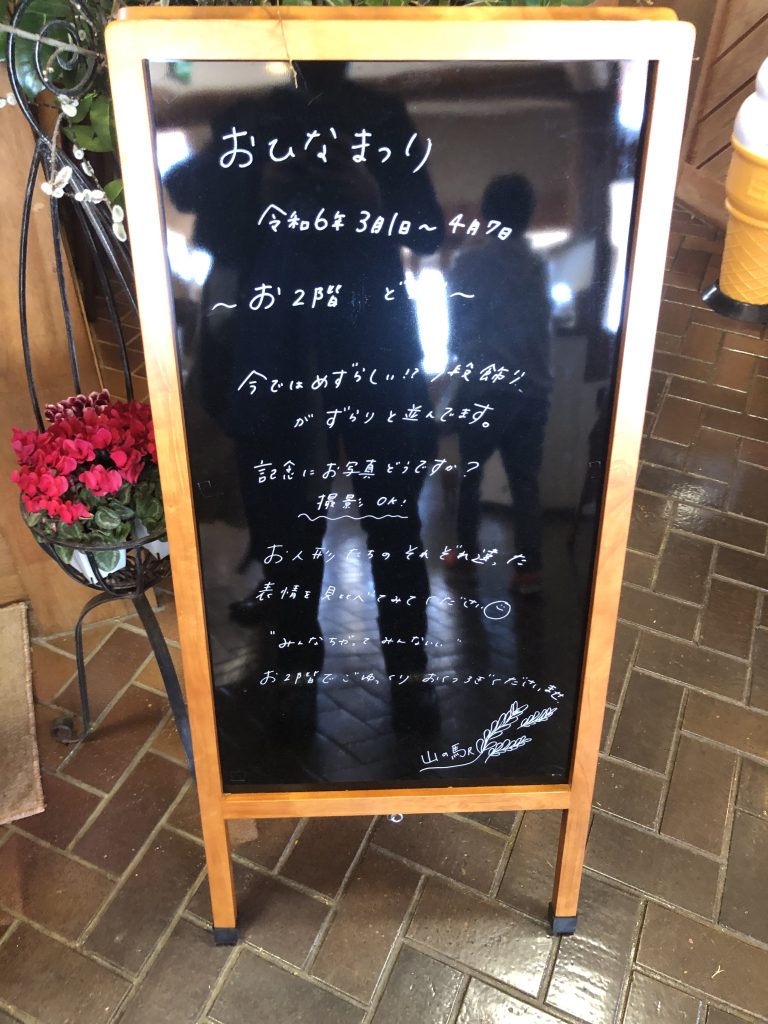 おひなまつり
令和6年 3月1日～4月7日
～お2階 ど ～
今ではめずらしい!? 段飾り
がずらりと並んでます。
記念にお写真どうですか?
撮影 OK!
お人形たちのそれぞれ違った
表情を見比べてみてください
"みんなちがって みんないい"
お2階でごゆっくりおくつろぎくださいませ
山の馬R